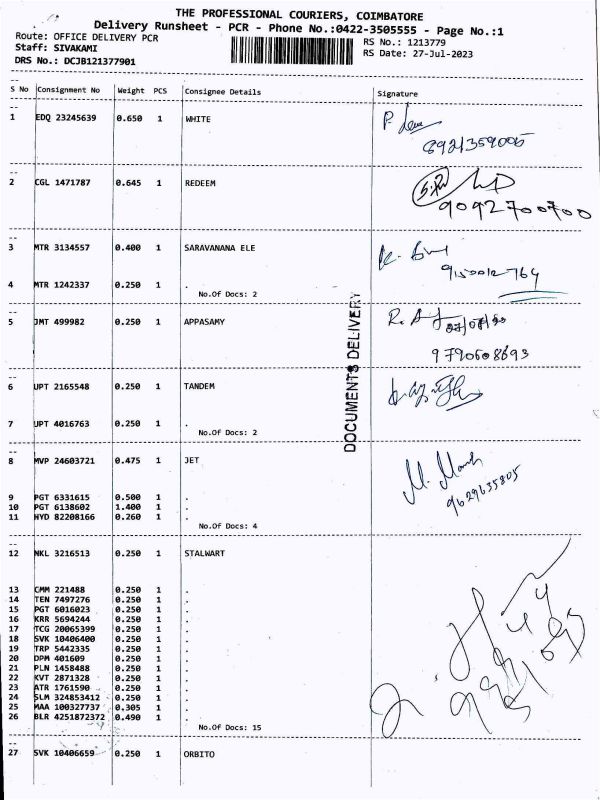 THE PROFESSIONAL COURIERS, COIMBATORE
Delivery Runsheet - PCR - Phone No.:0422-3505555 - Page No.:1
Route: OFFICE DELIVERY PCR
RS No.: 1213779
Staff: SIVAKAMI
RS Date: 27-Jul-2023
DRS No.: DCJB121377901
S No Consignment No Weight PCS Consignee Details Signature
1 EDQ 23245639 0.650 1 WHITE
2 CGL 1471787 0.645 1 REDEEM
9092700700
3 MTR 3134557 0.400 1 SARAVANANA ELE
4 MTR 1242337 0.250 1 .
No.Of Docs: 2
DOCUMENTS DELIVERY
5 JMT 499982 0.250 1 APPASAMY
9790608693
6 UPT 2165548 0.250 1 TANDEM
7 UPT 4016763 0.250 1 .
No.Of Docs: 2
8 MVP 24603721 0.475 1 JET
9629635805
9 PGT 6331615 0.500 1 .
10 PGT 6138602 1.400 1 .
11 HYD 82208166 0.260 1 .
No.Of Docs: 4
12 NKL 3216513 0.250 1 STALWART
13 CMM 221488 0.250 1 .
14 TEN 7497276 0.250 1 .
15 PGT 6016023 0.250 1 .
16 KRR 5694244 0.250 1 .
17 TCG 20065399 0.250 1 .
18 SVK 10406400 0.250 1 .
19 TRP 5442335 0.250 1 .
20 DPM 401609 0.250 1 .
21 PLN 1458488 0.250 1 .
22 KVT 2871328 0.250 1 .
23 ATR 1761590 0.250 1 .
24 SLM 324853412 0.250 1 .
25 MAA 100327737 0.305 1 .
26 BLR 4251872372 0.490 1 .
No.Of Docs: 15
27 SVK 10406659 0.250 1 ORBITO